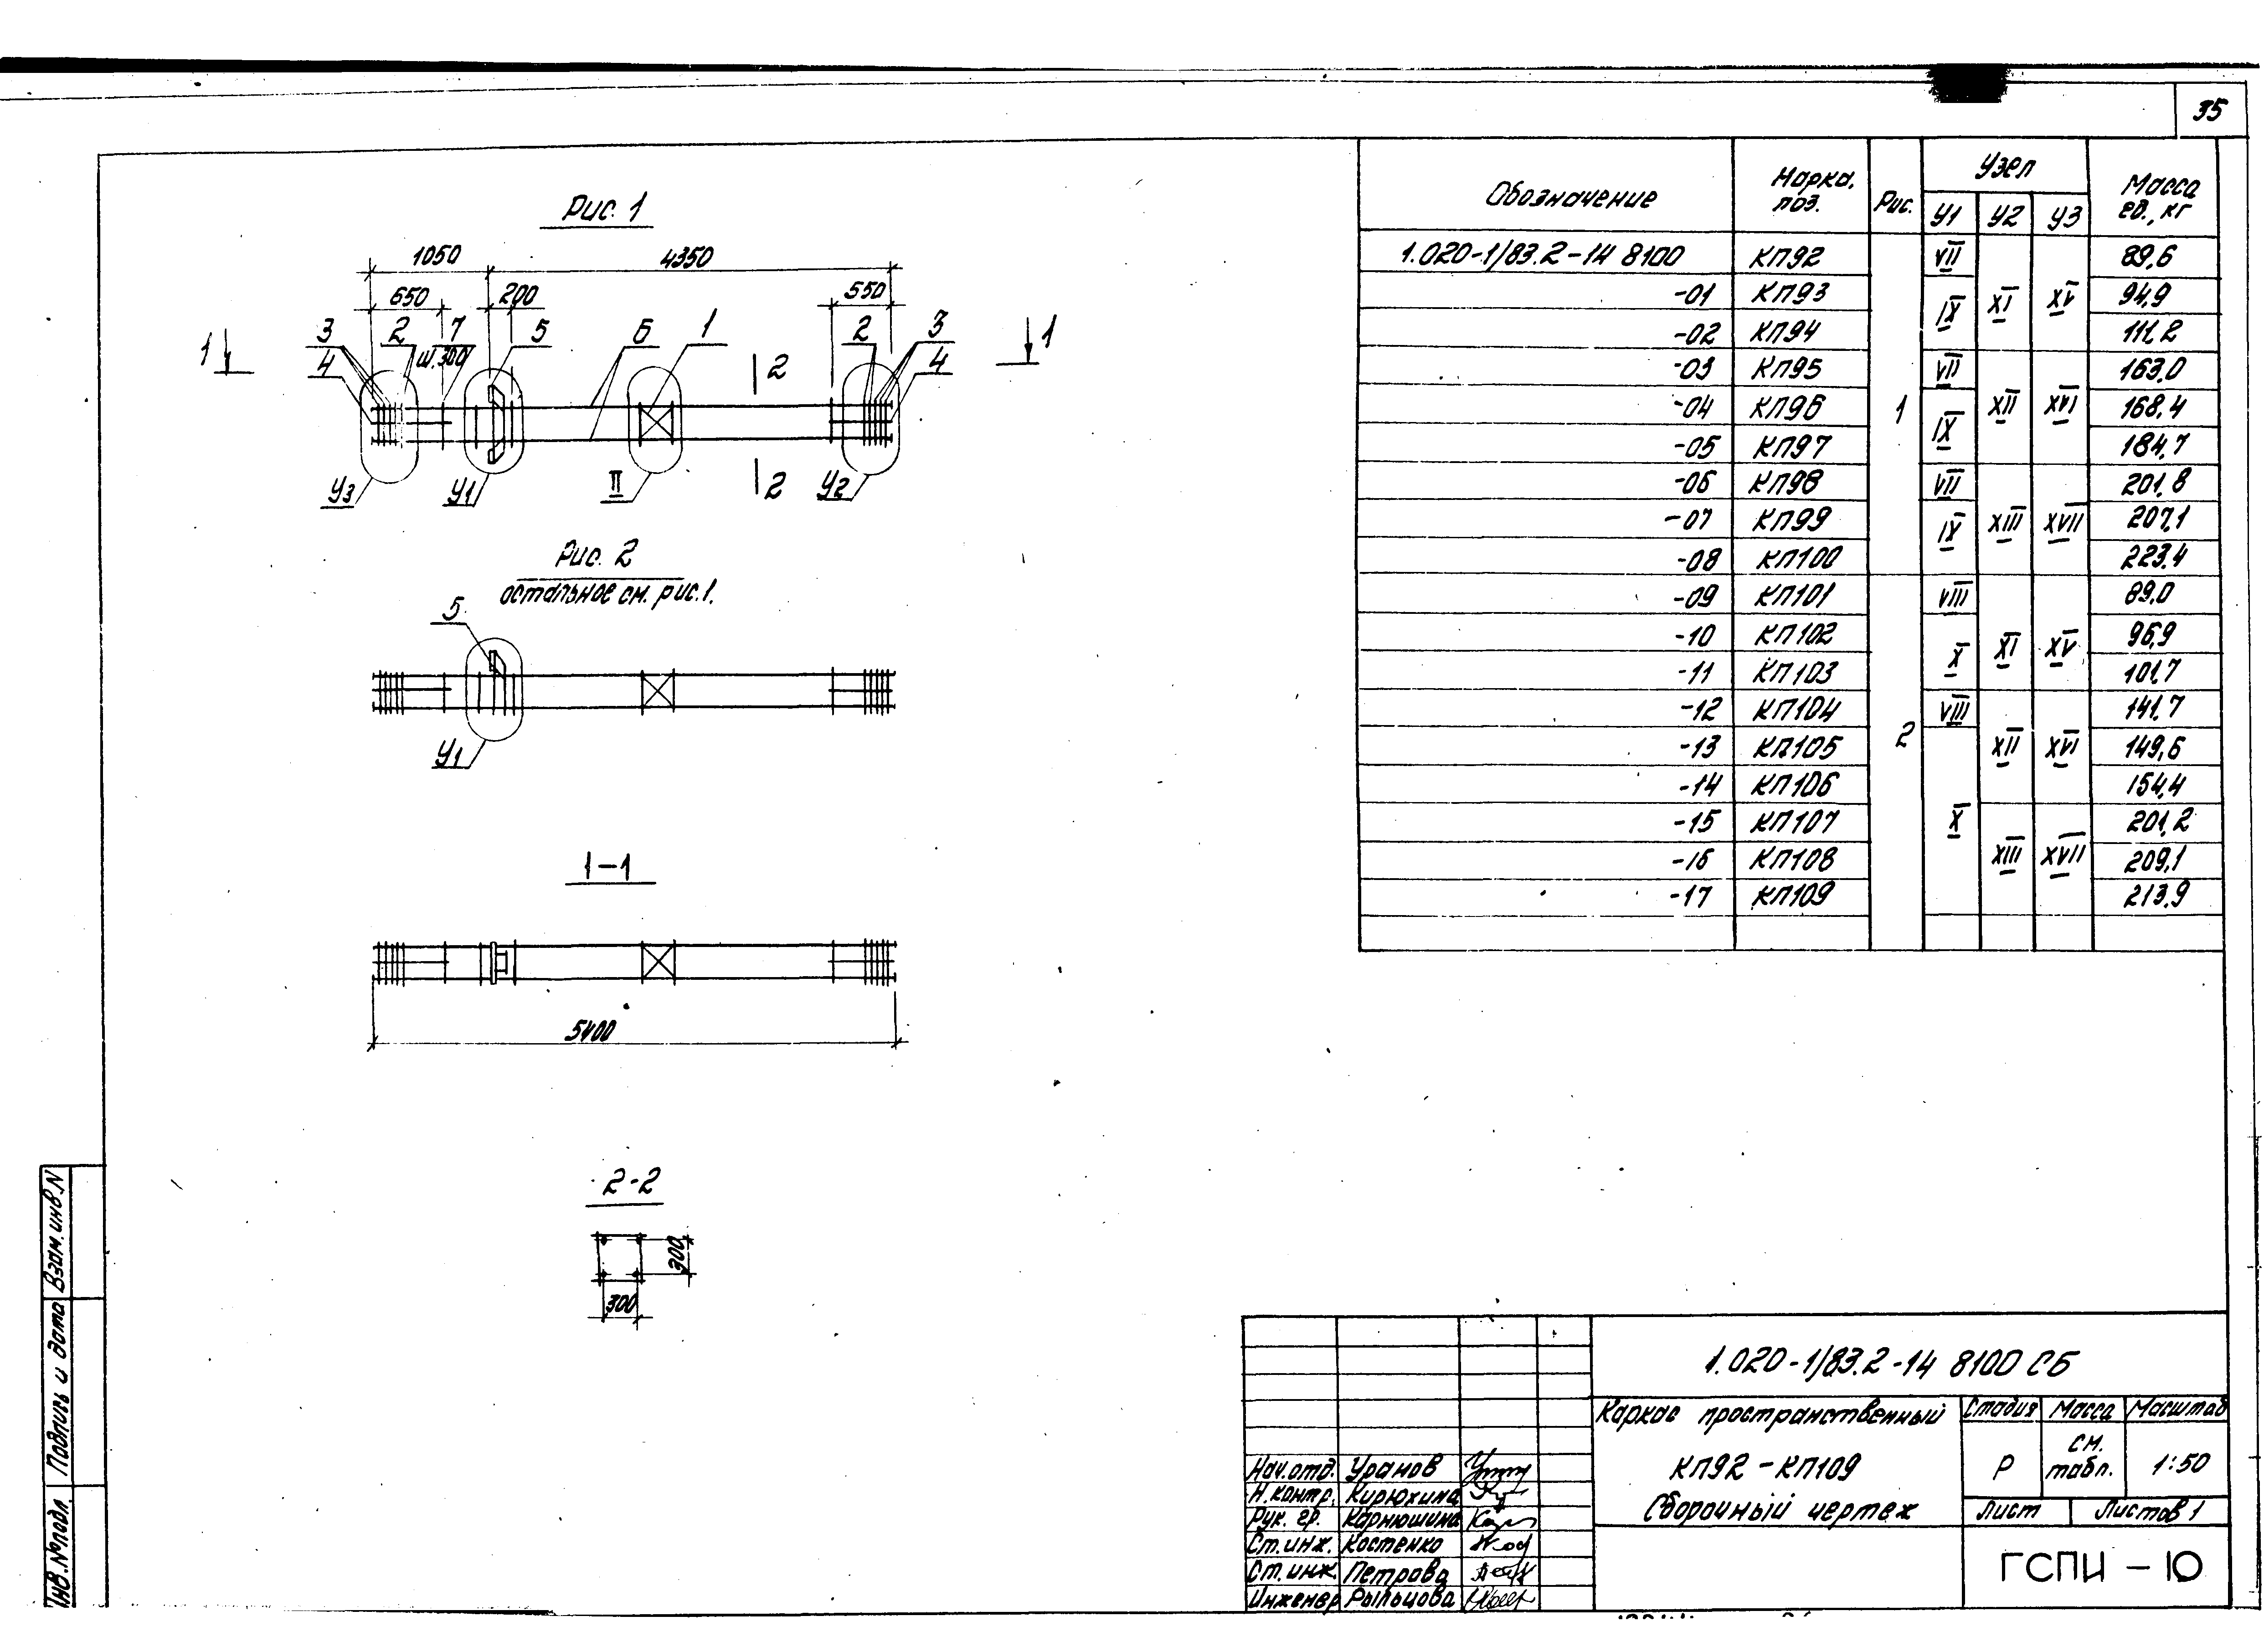 35
Рис. 1
1050 4350
650 200 550
3 2 7 5 6 1 2 3
4 ш.300 4
1 1
2
2
У3 У1 II У2
Рис. 2
остальное см. рис.1.
5
У1
1-1
5400
2-2
300
300
Обозначение Марка, поз. Рис. Узел Масса ед., кг
У1 У2 У3
1.020-1/83.2-14 8100 КП92 VII 89,6
-01 КП93 IX XI XV 94,9
-02 КП94 111,2
-03 КП95 VII 163,0
-04 КП96 1 XII XVI 168,4
-05 КП97 IX 184,7
-06 КП98 VII 201,8
-07 КП99 IX XIII XVII 207,1
-08 КП100 223,4
-09 КП101 VIII 89,0
-10 КП102 XI XV 96,9
-11 КП103 X 101,7
-12 КП104 VIII 141,7
-13 КП105 2 XII XVI 149,6
-14 КП106 154,4
-15 КП107 X 201,2
-16 КП108 XIII XVII 209,1
-17 КП109 213,9
Взам.инв.N
Подпись и дата
Инв.№подл.
1.020-1/83.2-14 8100 СБ
Каркас пространственный
КП92-КП109
Сборочный чертеж
Стадия Масса Масштаб
Р см. табл. 1:50
Лист Листов 1
ГСПИ - 10
Нач.отд. Уранов
Н.контр. Кирюхина
Рук. гр. Карнюшина
Ст.инж. Костенко
Ст.инж. Петрова
Инженер Рыльцова